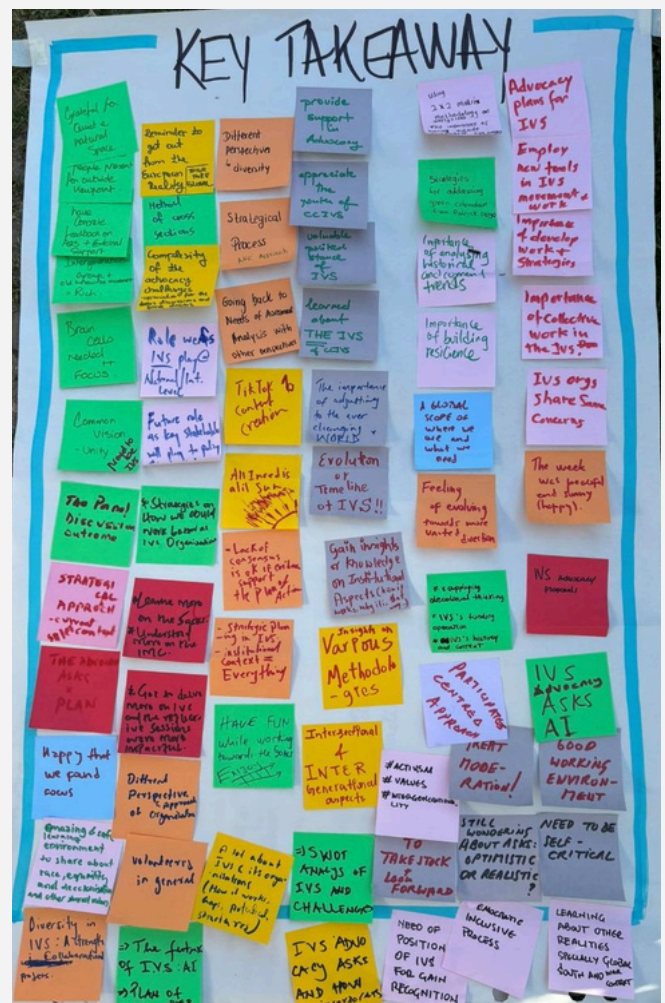 KEY TAKEAWAY
Grateful for
quiet &
natural
space
People present
for outside
viewpoint
have
concrete
feedback on
Asks + External
Support
Group +
Rich.
Brain
Cells
Needed
++
Focus
Common
Vision
- Unity
Proud to
be IVS
The Panel
Discussion
outcome
STRATEGI
CAL
APPROACH
- current
context
THE ADVOCACY
ASKS
PLAN
Happy that
we found
focus
amazing & safe
learning
environment
to share about
race, equality,
and decolonisation
and other shared values
Diversity in
IVS: A strength
in Collaborative
projects.
Reminder to
get out
from the
European
Reality
Method
of cross
sections
Complexity
of the
advocacy
challenges
Role we as
IVS play @
National/Int.
Level
Future role
as key stakeholder
will play in policy
* Strategies on
How we could
work better as
IVS Organisation
* Learn more
on the
* Understand
more on the
* Got to delve
more on IVS
and the
sessions
were more
impactful.
Different
Perspective
& approach
of Organisation
Volunteered
in general
=> The future
of IVS: AI
=> PLAN OF
Different
perspective
↳ diversity
Strategical
Process
Going back to
Needs of Assessment
Analysis with
other perspectives
TikTok
content
creation
All I need is
a lil Sun
- Lack of
consensus
is ok in order
support
the Plan of
Action
- Strategic Plan
ing in IVS
- institutional
context =
Everything
HAVE FUN
while working
towards the
A lot about
IVS & its orga
nisations
(How it works,
gaps, potential,
structures)
provide
support
in
Advocacy
appreciate
the
youth of
CCIVS
valuable
stance of
IVS
learned
about
THE IVS
of CCIVS
The importance
of adjusting
to the ever
changing
WORLD
Evolution
or
Timeline
of IVS!!
Gain insights
or knowledge
on Institutional
Aspects
Insights on
Various
Methodolo
-gies
Intersectional
&
INTER
Generational
aspects
=> SWOT
Analysis of
IVS AND
CHALLENGES
IVS ADVO
CACY ASKS
AND HOW
using
2x2 matrix
methodology
Strategies
for addressing
Importance
of analysing
historical
and current
trends
Importance
of building
resilience
A GLOBAL
SCOPE OF
where we
are and
what we
need
Feeling
of evolving
towards more
united
direction
* applying
decolonial thinking
* IVS's funding
operation
* IVS's history
and context
PARTICIPATED
CENTRED
APPROACH
#ACTIVISM
#VALUES
#INTERGENERATIONAL
LITY
TO
TAKE STOCK
LOOK
FORWARD
NEED OF
POSITION
OF IVS
FOR GAIN
RECOGNITION
GREAT
MODE-
RATION!
STILL
WONDERING
ABOUT ASKS:
OPTIMISTIC
OR REALISTIC
?
DEMOCRATIC
INCLUSIVE
PROCESS
Advocacy
plans for
IVS
Employ
new tools
in IVS
movement &
work
Importance
of develop
work +
Strategies
Importance
of Collective
work in
the IVS.
IVS orgs
share Same
Concerns
The week
was powerful
and sunny
(happy).
IVS ADVOCACY
IVS
Advocacy
ASKS
AI
GOOD
WORKING
ENVIRON-
MENT
NEED TO BE
SELF-
CRITICAL
LEARNING
ABOUT OTHER
REALITIES
SPECIALLY GLOBAL
SOUTH AND